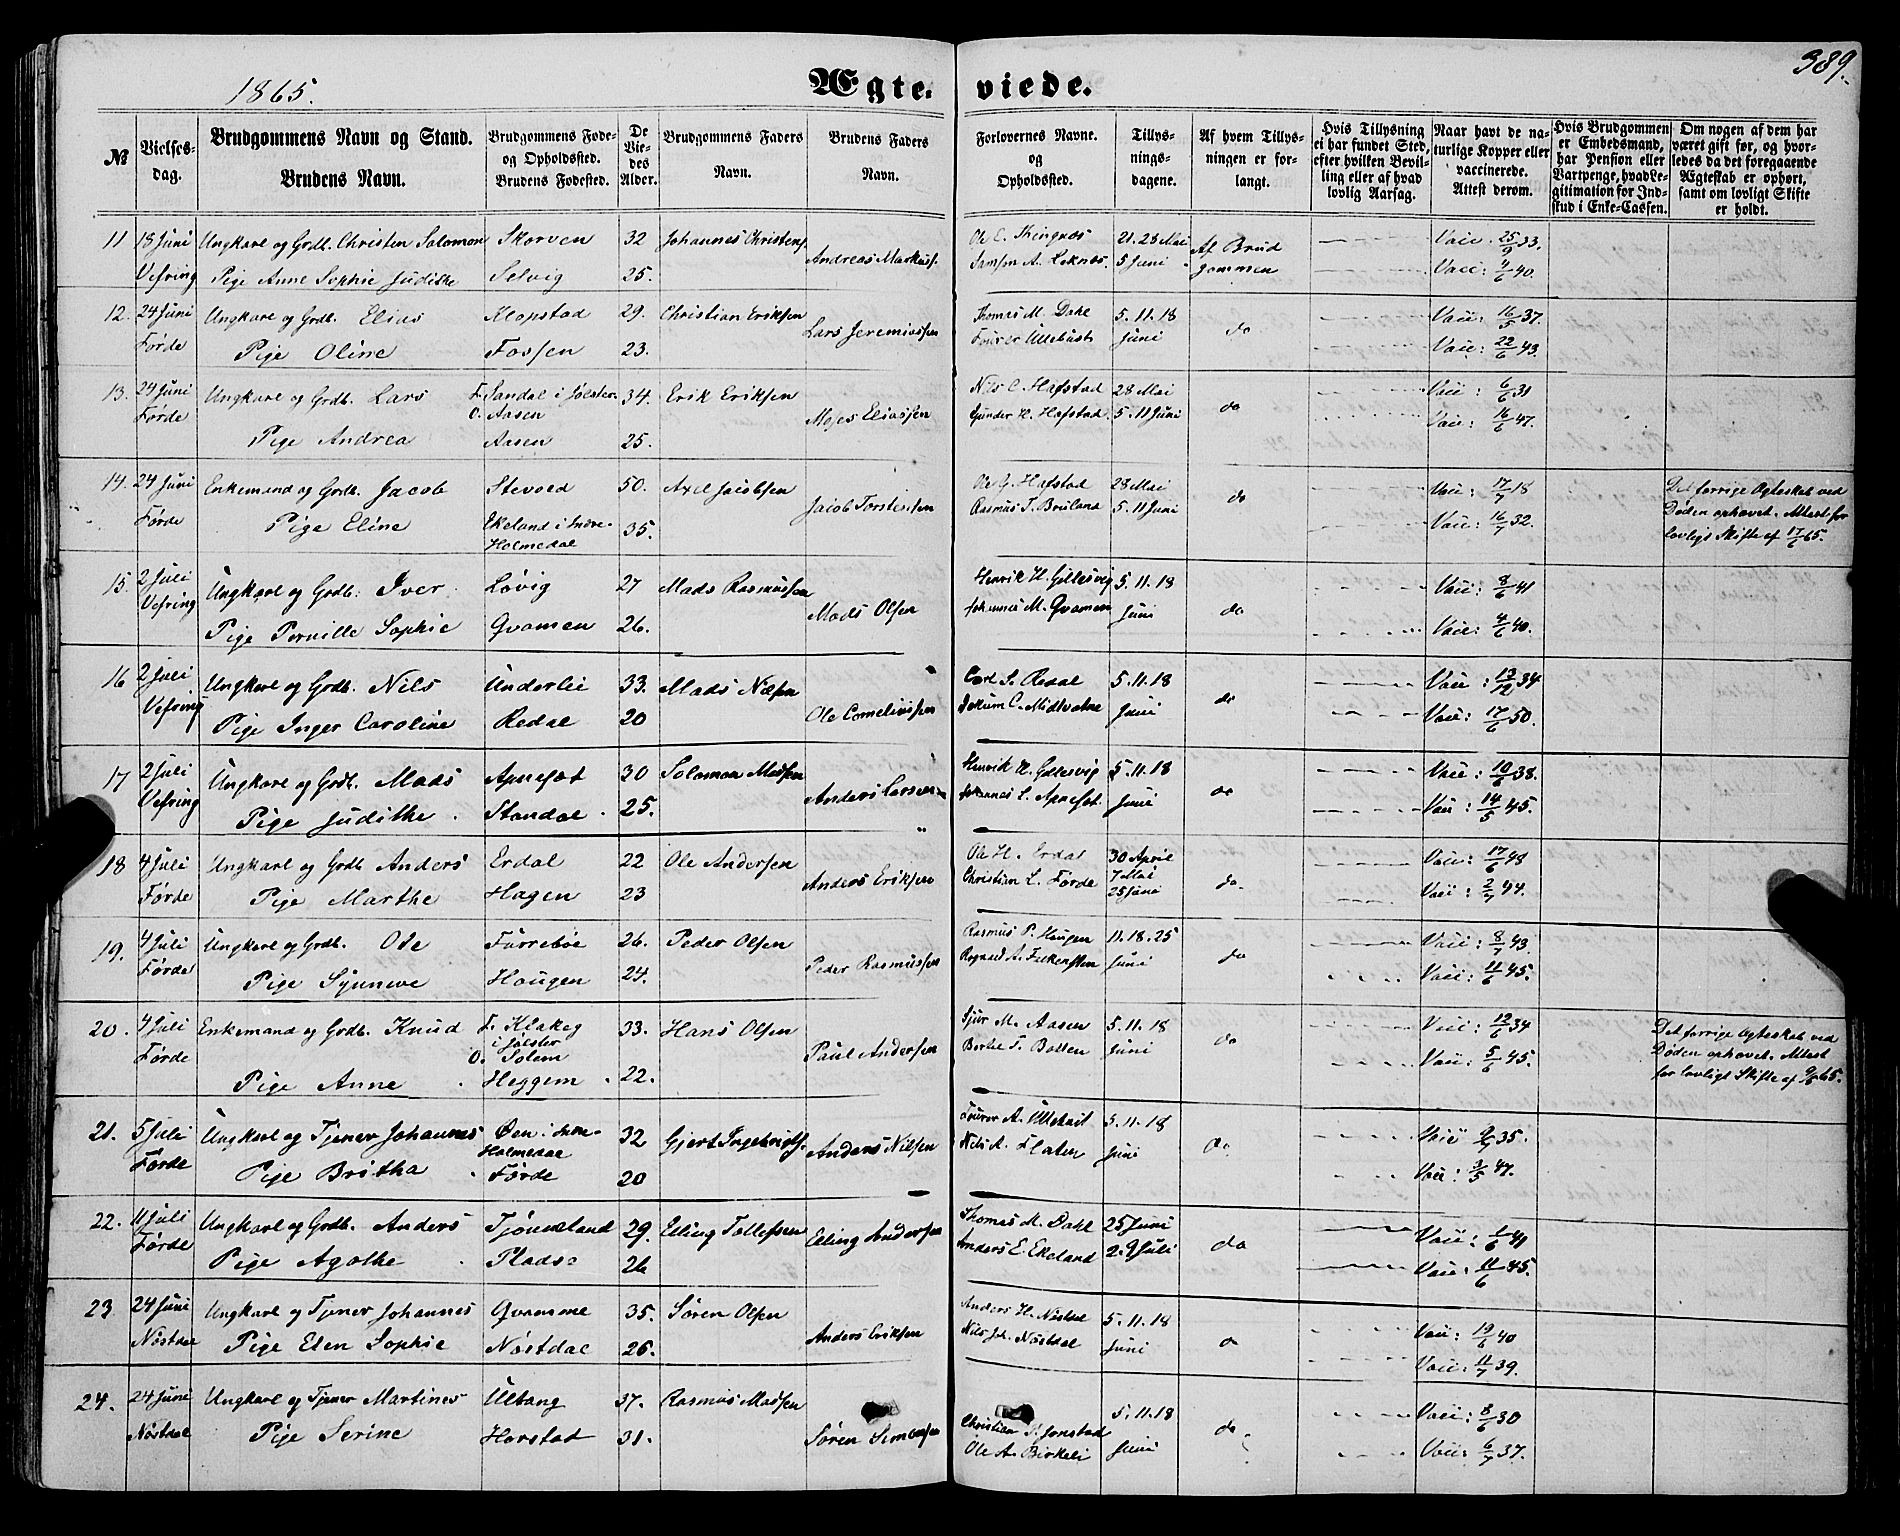 389.
1865.
Ægte- viede.
№
Vielses-dag.
Brudgommens Navn og Stand.
Brudens Navn.
Brudgommens Føde- og Opholdssted.
Brudens Fødested.
De Viedes Alder.
Brudgommens Faders Navn.
Brudens Faders Navn.
Forlovernes Navne. og Opholdsted.
Tillysningsdagene.
Af hvem Tillysningen er forlangt.
Hvis Tillysning ei har fundet Sted, efter hvilken Bevilling eller af hvad lovlig Aarsag.
Naar havt de naturlige Kopper eller vaccinerede. Attest derom.
Hvis Brudgommen er Embedsmand, har Pension eller Vartpenge, hvad Legitimation for Indskud i Enke-Cassen.
Om nogen af dem har været gift før, og hvorledes da det foregaaende Ægteskab er ophørt, samt om lovligt Skifte er holdt.
11 18 Juni Ungkarl og Grdb. Christen Salomon Skorven 32 Johannes Christens. Andreas Markuss. Ole E. Thingnæs 21. 28 Mai Af Brud Vacc. 25/9 33.
Vefring Pige Anne Sophie Judithe Selvig 25. Samson A. Leknæs 5 Juni gommen Vacc: 4/6 40.
12. 24 Juni Ungkarl og Grdb. Elias Klopstad 29. Christian Eriksen Lars Jeremiassen Thomas M. Dahl 5. 11. 18 do Vacc: 16/5 37.
Førde Pige Oline Fossen 23. Ullebust Juni Vacc: 22/6 43.
13. 24 Juni Ungkarl og Grdb. Lars F. Sandal i Jølster 34. Erik Eriksen Moses Eliassen Nils C. Hafstad 28 Mai do Vacc: 6/6 31
Førde O. Aasen Gunder N. Hafstad 5. 11 Juni Vacc: 16/6 47.
Pige Andrea Aasen 25.
14. 24 Juni Enkemand og Grdb. Jacob Stevold 50. Axel Jacobsen Jacob Torstensen Ole G. Hafstad 28 Mai do Vacc: 17/7 18 Det forrige Ægteskab ved
Førde Pige Eline Ekeland i Indre- 35. Rasmus T. Bruland 5. 11 Juni Vacc: 16/7 32. Døden ophævet. Attest for
Holmedal lovligt Skifte af 17/6 65.
15. 2 Juli Ungkarl og Grdb. Iver Løvig 27 Mads Rasmussen Mads Olsen Henrik H. Gjellesvig 5. 11. 18 do Vacc: 8/6 41
Vefring Pige Pernille Sophie Qvamen 26. Johannes M. Qvamen Juni Vacc: 4/6 40.
16 2 Juli Ungkarl og Grdb. Nils Underlie 33. Mads Nilsen Ole Corneliussen Carl S. Redal 5. 11. 18 do Vacc: 13/12 34
Vefring Pige Inger Caroline Redal 20 C. Midtvatne Juni Vacc: 17/6 50.
17 2 Juli Ungkarl og Grdb. Mads Apneset 30 Salomon Madsen Anders Larsen Henrik H. Gjellesvig 5. 11. 18 do Vacc: 10/6 38.
Vefring Pige Judithe Standal 25. Johannes L. Apneset Juni Vacc: 14/5 45.
18 4 Juli Ungkarl og Grdb Anders Erdal 22 Ole Andersen Anders Eriksen Ole H. Erdal 30 April do. Vacc: 17/6 48
Førde Pige Marthe Hagen 23 Christian L. Førde 7 Mai Vacc: 2/7 44.
25 Juni
19. 4 Juli Ungkarl og Grdb. Ole Furrebøe 26. Peder Olsen Peder Rasmussen Rasmus P. Haugen 11. 18. 25 do Vacc: 8/7 43
Førde Pige Synneve Haugen 24. Juni Vacc: 11/6 45.
20. 4 Juli Enkemand og Grdb. Knud F. Klakeg 33. Hans Olsen Paul Andersen Sjur M. Aasen 5. 11. 18 do Vacc: 12/6 34 Det forrige Ægteskab ved
Førde i Jølster Bertel T. Botten Juni Vacc: 5/6 45. Døden ophævet. Attest
O. Solem for lovligt Skifte af 9/6 65.
Pige Anne Heggem 22.
21. 5 Juli Ungkarl og Tjener Johannes Øen i Indre- 32 Gjert Ingebrigts. Anders Nilsen A. Ullebust 5. 11. 18 do Vacc 9/7 35.
Førde Holmedal Nils A. Flaten Juni Vacc: 3/5 47.
Pige Britha Førde 20
22. 11 Juli Ungkarl og Grdb. Anders Tjønneland 29. Elling Tollefsen Elling Andersen Thomas M. Dahl 25 Juni do Vacc: 1/6 41
Førde Pige Agathe Pladse 26 Anders E. Ekeland 2. 9 Juli Vacc: 11/6 45.
23. 24 Juni Ungkarl og Tjener Johannes Qvamme 35. Søren Olsen Anders Eriksen Anders H. Nøstdal 5. 11. 18 do Vacc: 19/6 40
Nøstdal Pige Elen Sophie Nøstdal 26. Nils Joh. Nøstdal Juni Vacc: 11/7 39.
24. 24 Juni Ungkarl og Tjener Martines Ultang 37. Rasmus Madsen Søren Simonsen Christian Jonstad 5. 11. 18 do Vacc: 8/6 30
Nøstdal Pige Serine Horstad 31. Ole A. Birkeli Juni Vacc: 6/7 37.